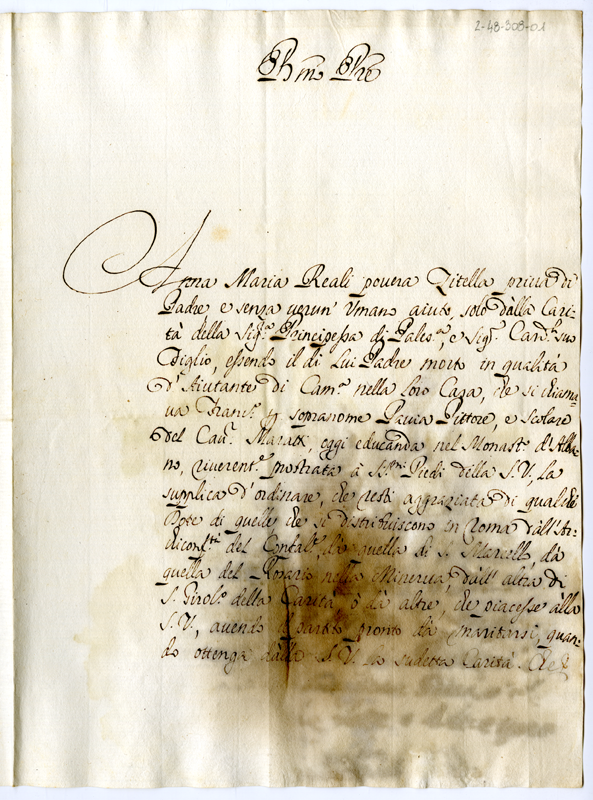 2-48-308-01
B.mo Pre
Anna Maria Reali povera Zitella priva di
Padre, e senza verun' Umano aiuto, solo dalla Cari-
tà della Sig.ra Principessa di Pales.a, e Sig.r Card.le suo
Figlio, essendo il di Lui Padre morto in qualità
d'Aiutante di Cam.a nella loro Casa, che si chiama-
va Franc.o p soprannome Pavia Pittore, e scolare
del Cau.r Maratt, oggi educanda nel Monast.o d'Alba-
no, riverent.e prostrata à SS.mi Piedi della S.V. La
supplica d'ordinare, che resti aggraziata di qualche
Dote di quelle che si distribuiscono in Roma dall'Ar-
chiconf.te del Confal.e, dà quella di S. Marcello, dà
quella del Rosario nella Minerva, dall'altra di
S. Girol.o della Carità ò dà altre, che piacesse alla
S.V., avendo il partito pronto dà maritarsi, quan-
do ottenga dalla S.V. la sudetta Carità. Che